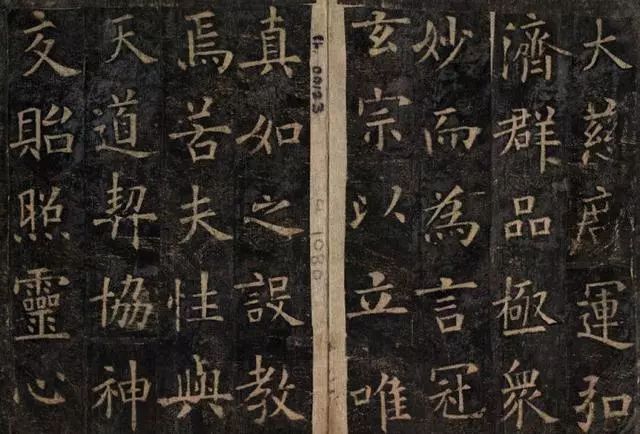 大慈運弘
濟群品極衆
妙而為言冠
玄宗以立唯
Ch 00123
1080
真如之設教
焉若夫性與
天道契協神
交貽照靈心